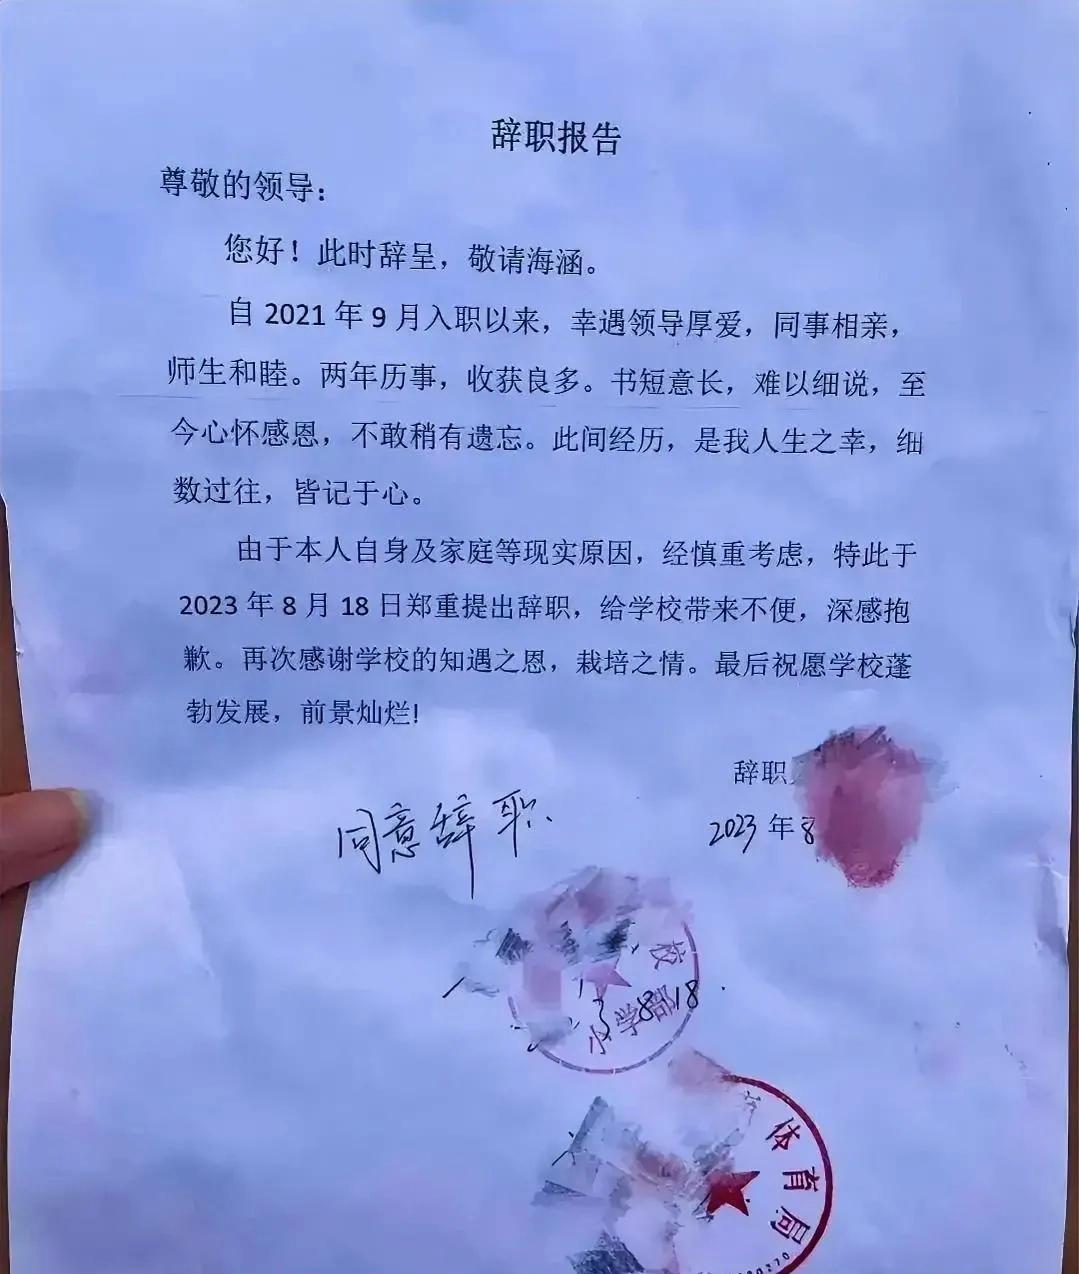 辞职报告
尊敬的领导：
您好！此时辞呈，敬请海涵。
自 2021 年 9 月入职以来，幸遇领导厚爱，同事相亲，
师生和睦。两年历事，收获良多。书短意长，难以细说，至
今心怀感恩，不敢稍有遗忘。此间经历，是我人生之幸，细
数过往，皆记于心。
由于本人自身及家庭等现实原因，经慎重考虑，特此于
2023 年 8 月 18 日郑重提出辞职，给学校带来不便，深感抱
歉。再次感谢学校的知遇之恩，栽培之情。最后祝愿学校蓬
勃发展，前景灿烂!
辞职
2023 年 8
同意辞职.
校
小学部
3 8 18.
体育局